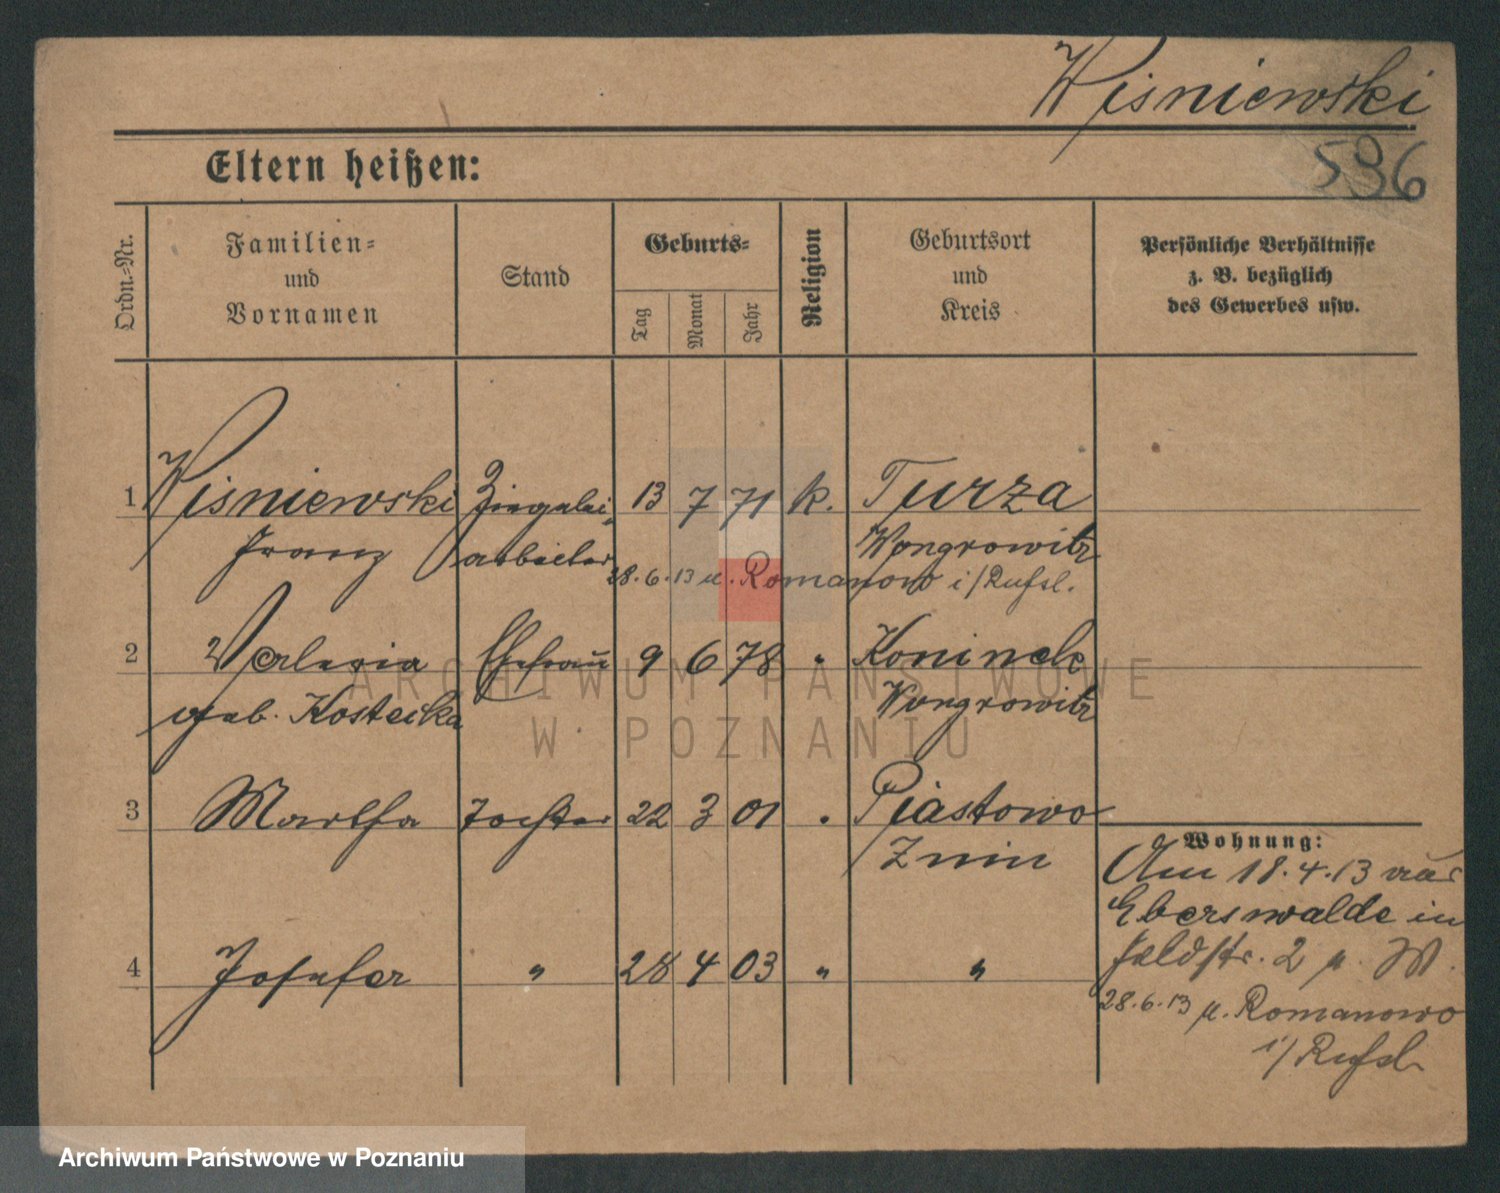 Wisniewski
536
Eltern heißen:
Ordn.-Nr.
Familien-
und
Vornamen
Stand
Geburts-
Tag
Monat
Jahr
Religion
Geburtsort
und
Kreis
Persönliche Verhältnisse
z. B. bezüglich
des Gewerbes usw.
1 Wisniewski Ziegelei- 13 7 71 k. Turza
Franz arbeiter Wongrowitz
28.6.13 n. Romanowo i/Rußl.
2 Valeria Ehefrau 9 6 78 " Koninek
geb. Kostecka Wongrowitz
3 Martha Tochter 22 3 01 " Piastowo
Znin
4 Josefa " 28 4 03 " "
Wohnung:
Am 18.4.13 aus
Eberswalde in
Feldstr. 2 M.
28.6.13 n. Romanowo
i/Rußl.
ARCHIWUM PAŃSTWOWE
W POZNANIU
Archiwum Państwowe w Poznaniu